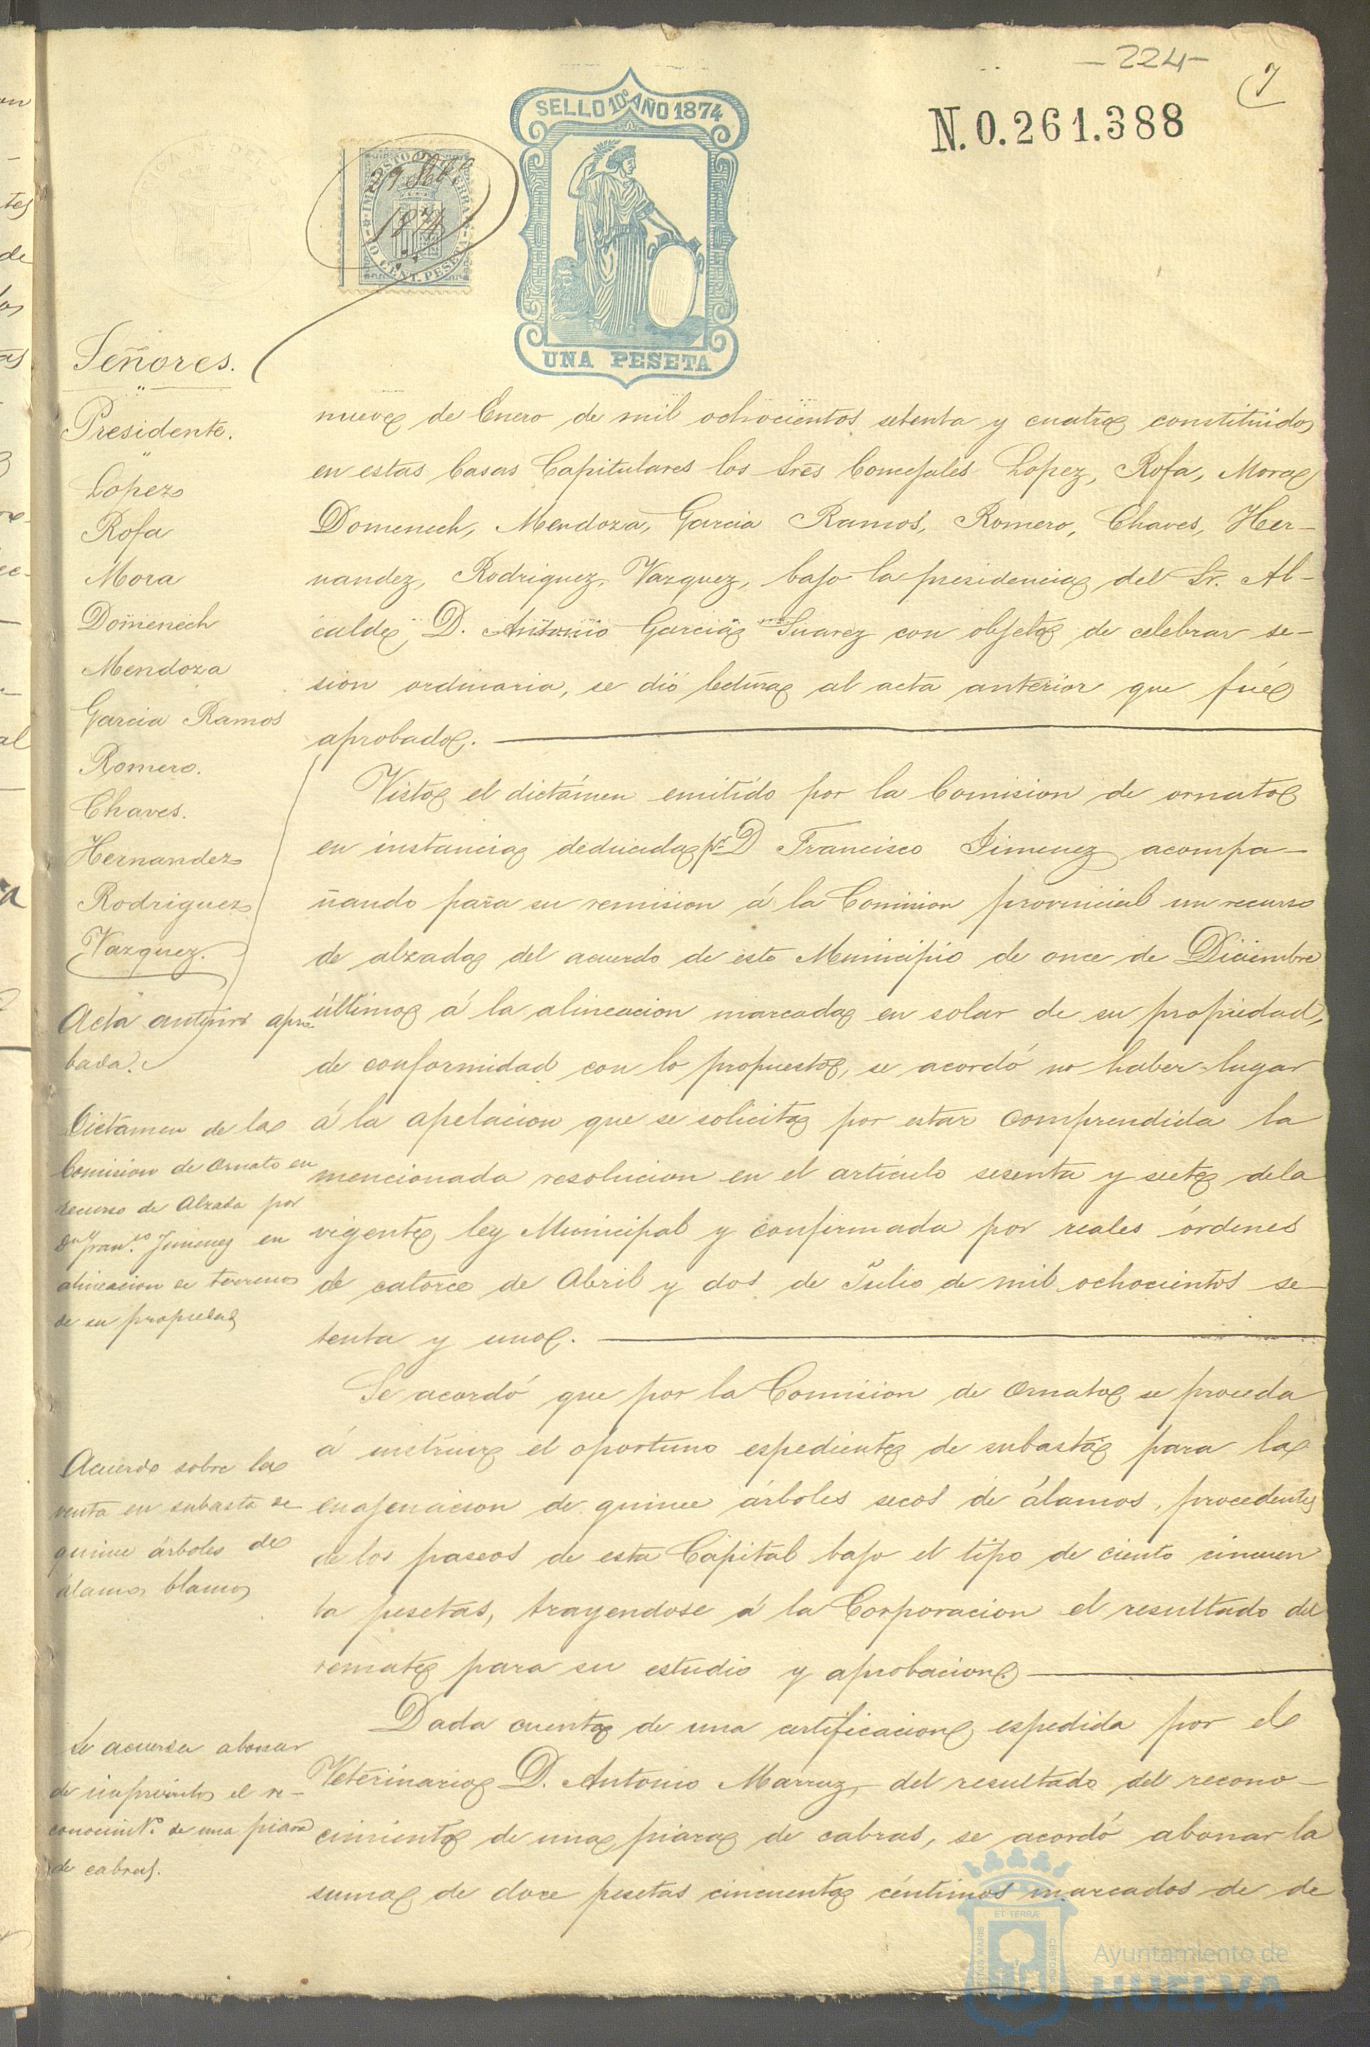 -224-
7
N. 0.261.388
SELLO 10º AÑO 1874
UNA PESETA
IMPUESTO DE GUERRA
10 CENT. PESETA
1874
Señores.
Presidente.
Lopez
Rofa
Mora
Domenech
Mendoza
Garcia Ramos
Romero.
Chaves.
Hernandez
Rodriguez
Vazquez.
Acta anterior apro
bada.
Dictamen de la
Comision de Ornato en
recurso de Alzada por
Dn Franco Jimenez en
alineacion de terrenos
de su propiedad
Acuerdo sobre la
venta en subasta de
quince árboles de
álamos blancos
Se acuerda abonar
de imprevistos el re-
conocimto. de una piara
de cabras.
nueve de Enero de mil ochocientos setenta y cuatro constituidos
en estas Casas Capitulares los Sres Concejales Lopez, Rofa, Mora,
Domenech, Mendoza, Garcia Ramos, Romero, Chaves, Her-
nandez, Rodriguez, Vazquez, bajo la presidencia del Sr. Al-
calde, D. Antonio Garcia Suarez con objeto de celebrar se-
sion ordinaria, se dió lectura al acta anterior que fué
aprobada.
Visto el dictámen emitido por la Comision de ornato
en instancia deducida pr D Francisco Jimenez acompa-
ñando para su remision á la Comision provincial un recurso
de alzada del acuerdo de este Municipio de once de Diciembre
último á la alineacion marcada en solar de su propiedad,
de conformidad con lo propuesto, se acordó no haber lugar
á la apelacion que se solicita por estar comprendida la
mencionada resolucion en el artículo sesenta y siete de la
vigente ley Municipal y confirmada por reales órdenes
de catorce de Abril y dos de Julio de mil ochocientos se-
tenta y uno.
Se acordó que por la Comision de Ornato se proceda
á instruir el oportuno espediente de subasta para la
enajenacion de quince árboles secos de álamos, procedentes
de los paseos de esta Capital bajo el tipo de ciento cincuen
ta pesetas, trayendose á la Corporacion el resultado del
remate para su estudio y aprobacion.
Dada cuenta de una certificacion espedida por el
Veterinario D. Antonio Marruz, del resultado del recono-
cimiento de una piara de cabras, se acordó abonar la
suma de doce pesetas cincuenta céntimos marcados de de
Ayuntamiento de
HUELVA